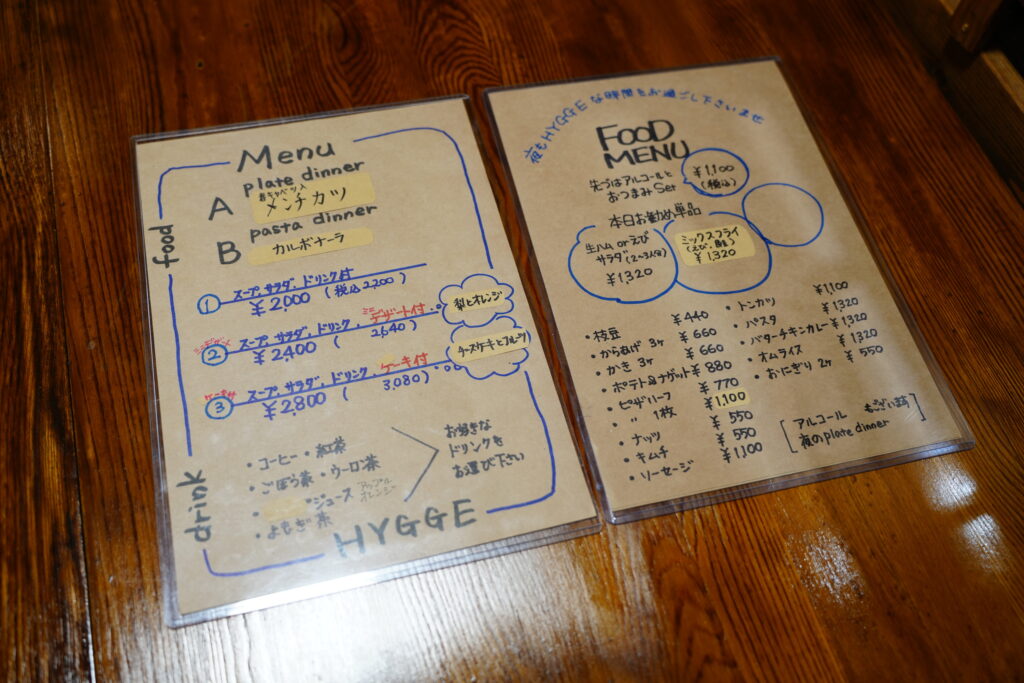 Menu
food
plate dinner
A
メンチカツ
pasta dinner
B
カルボナーラ
① スープ、サラダ、ドリンク付
¥2,000 (税込2,200)
② スープ、サラダ、ドリンク、ミニデザート付
¥2,400 (2,640)
梨とオレンジ
③ スープ、サラダ、ドリンク、ケーキ付
¥2,800 (3,080)
チーズケーキとフルーツ
drink
・コーヒー・紅茶
・ごぼう茶・ウーロン茶
・ジュース アップル
オレンジ
・よもぎ茶
お好きな
ドリンクを
お選び下さい
HYGGE
夜もHYGGEな時間をお過ごし下さいませ
FOOD
MENU
先づはアルコールと
おつまみSet
¥1,100
(税込)
本日お勧め単品
生ハム or えび
サラダ(2~3人分)
¥1,320
ミックスフライ
¥1,320
・枝豆 ¥440
・からあげ 3ヶ ¥660
・かき 3ヶ ¥660
・ポテト&ナゲット ¥880
・ピザハーフ ¥770
・〃 1枚 ¥1,100
・ナッツ ¥550
・キムチ ¥550
・ソーセージ ¥1,100
・トンカツ ¥1,100
・パスタ ¥1,320
・バターチキンカレー ¥1,320
・オムライス ¥1,320
・おにぎり 2ヶ ¥550
[アルコール
夜のplate dinner もございます]